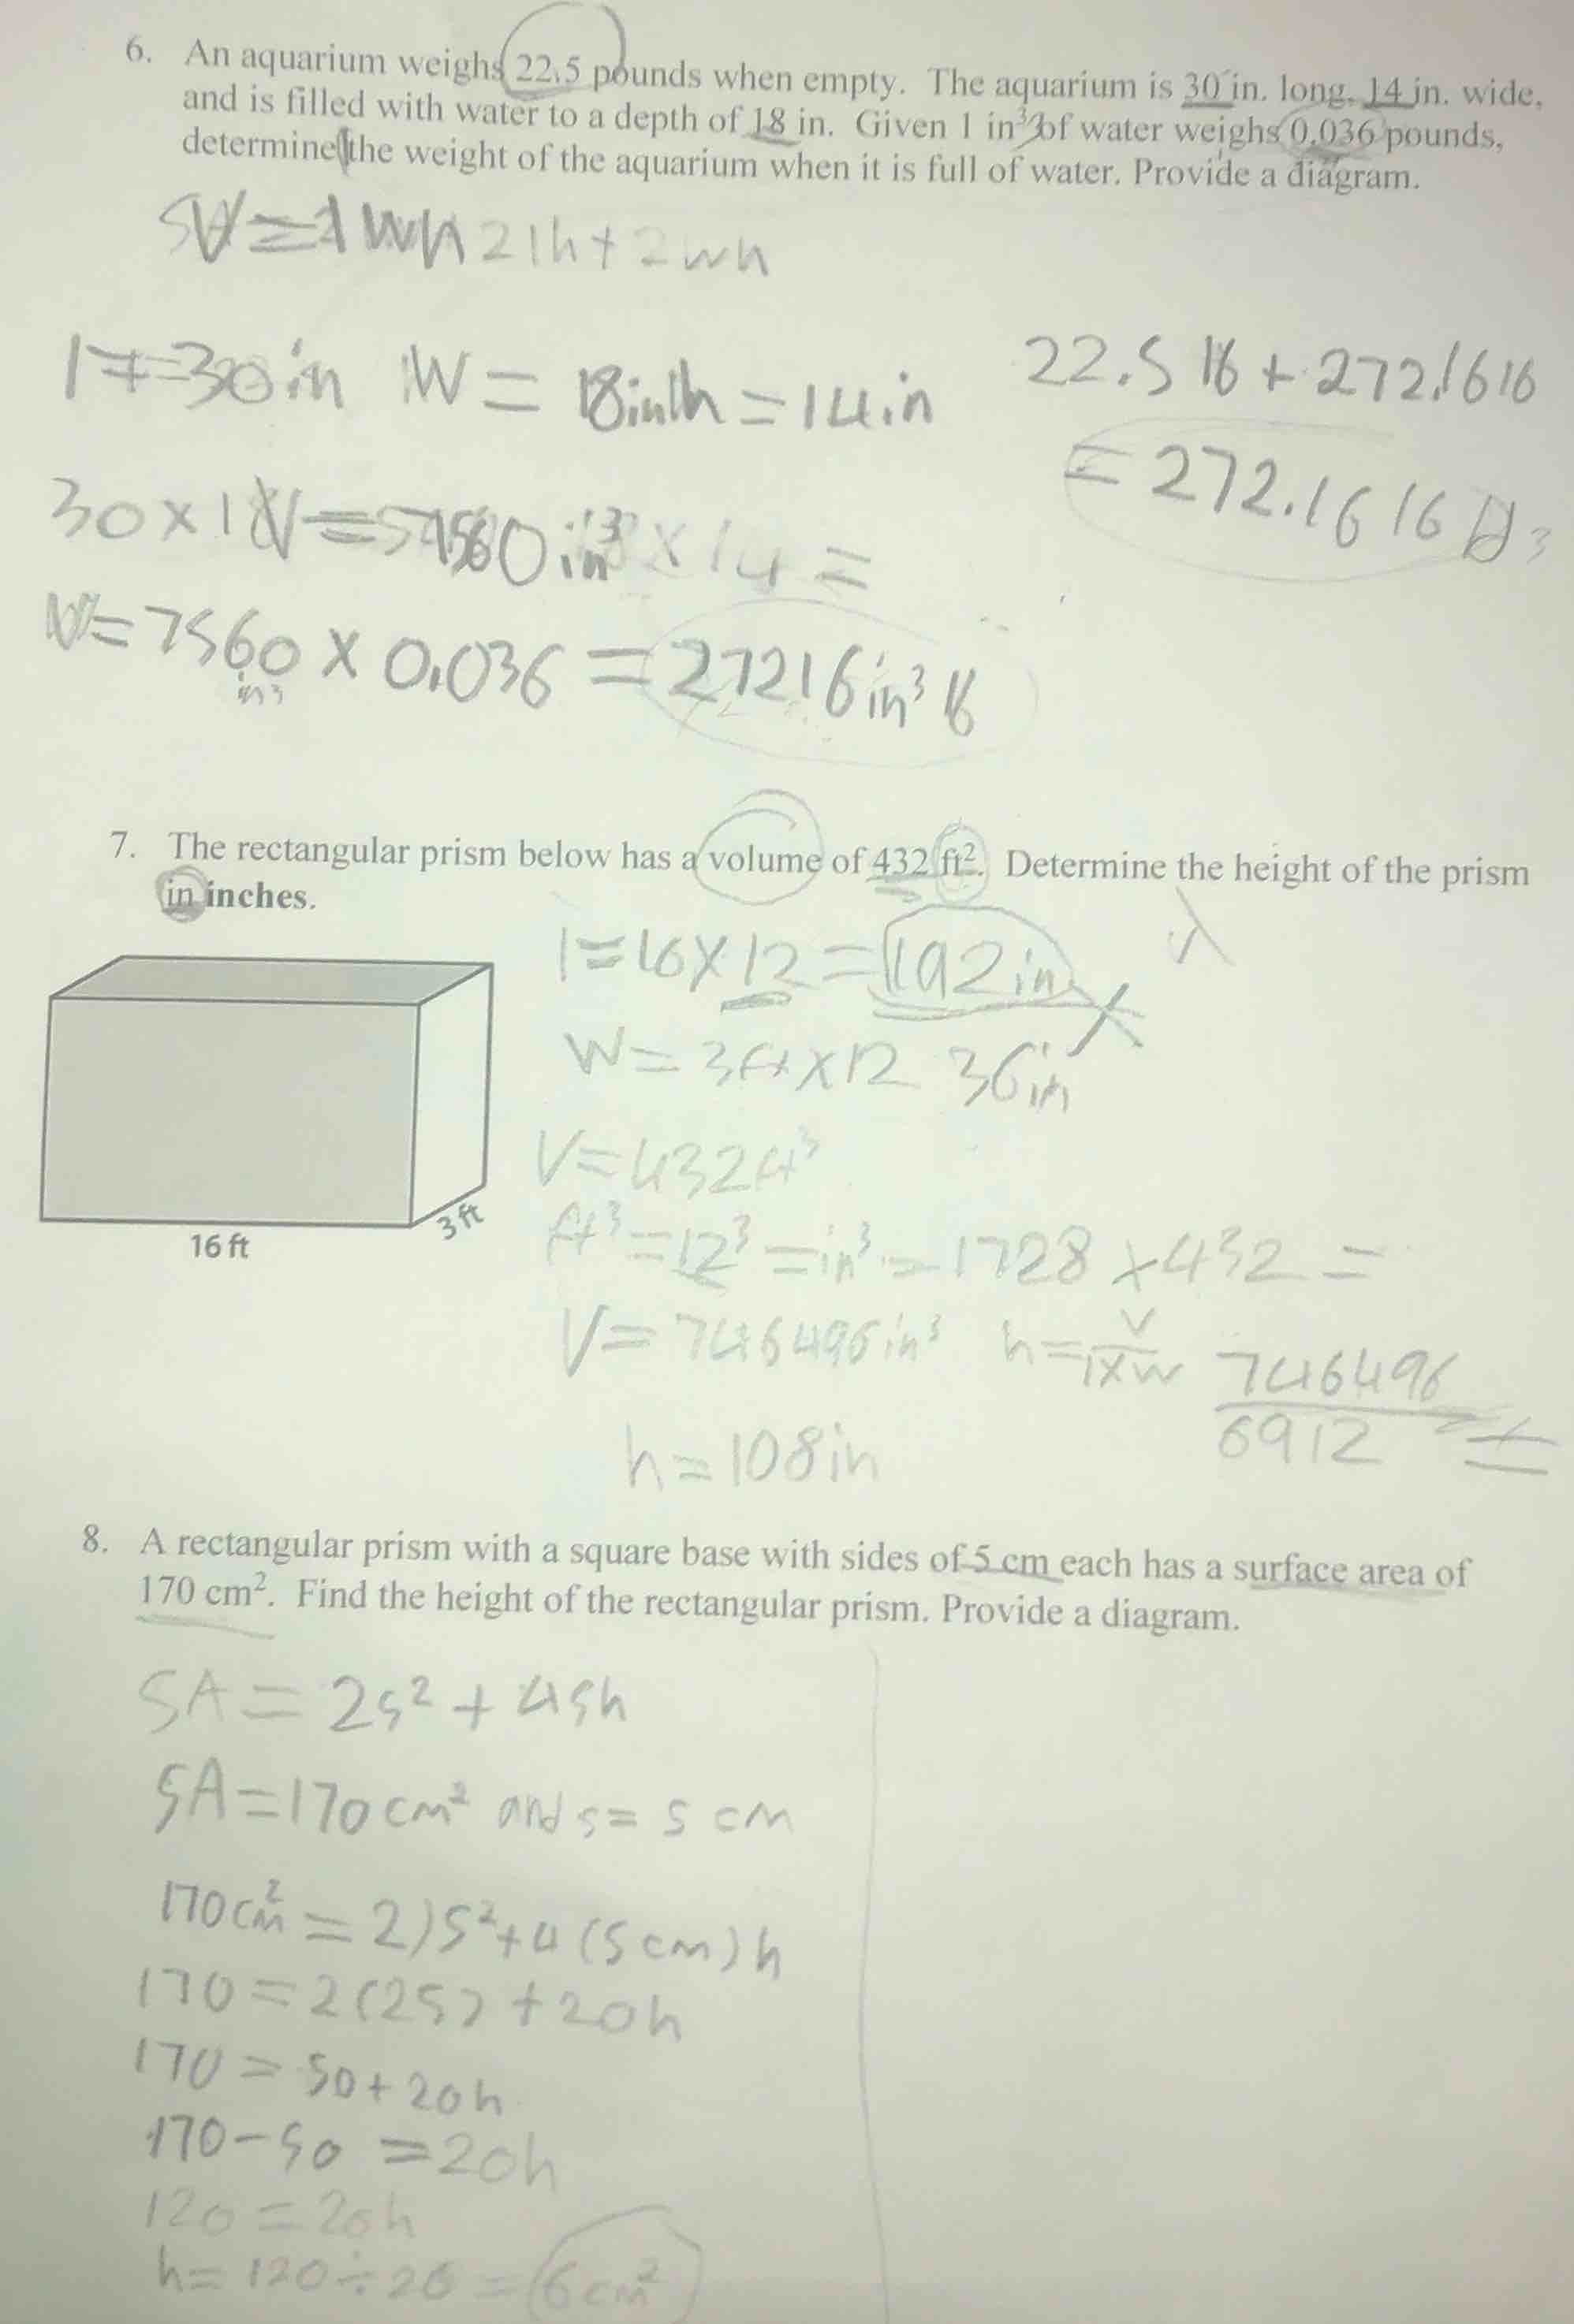 6. An aquarium weighs 22.5 pounds when empty. The aquarium is 30 in. long, 14 in. wide,
and is filled with water to a depth of 18 in. Given 1 in³ of water weighs 0.036 pounds,
determine the weight of the aquarium when it is full of water. Provide a diagram.
2lh + 2wh
l = 30 in W = 18in h = 14in
22.5 lb + 272.16 lb
= 272.16 lb
30 x 18 x 14 =
V = 7560 in³
V = 7560 in³ x 0.036 = 27216 in³ lb
7. The rectangular prism below has a volume of 432 ft². Determine the height of the prism
in inches.
l = 16 x 12 = 192 in
W = 3ft x 12 36in
V = 432 ft³
16 ft
3 ft
ft³ = 12³ = in³ = 1728 x 432 =
V = 746496 in³ h = V/lxw 746496/6912 =
h = 108in
8. A rectangular prism with a square base with sides of 5 cm each has a surface area of
170 cm². Find the height of the rectangular prism. Provide a diagram.
SA = 2s² + 4sh
SA = 170 cm² and s = 5 cm
170cm² = 2)5² + 4 (5 cm) h
170 = 2(25) + 20h
170 = 50 + 20h
170 - 50 = 20h
120 = 20h
h = 120 ÷ 20 = 6 cm²